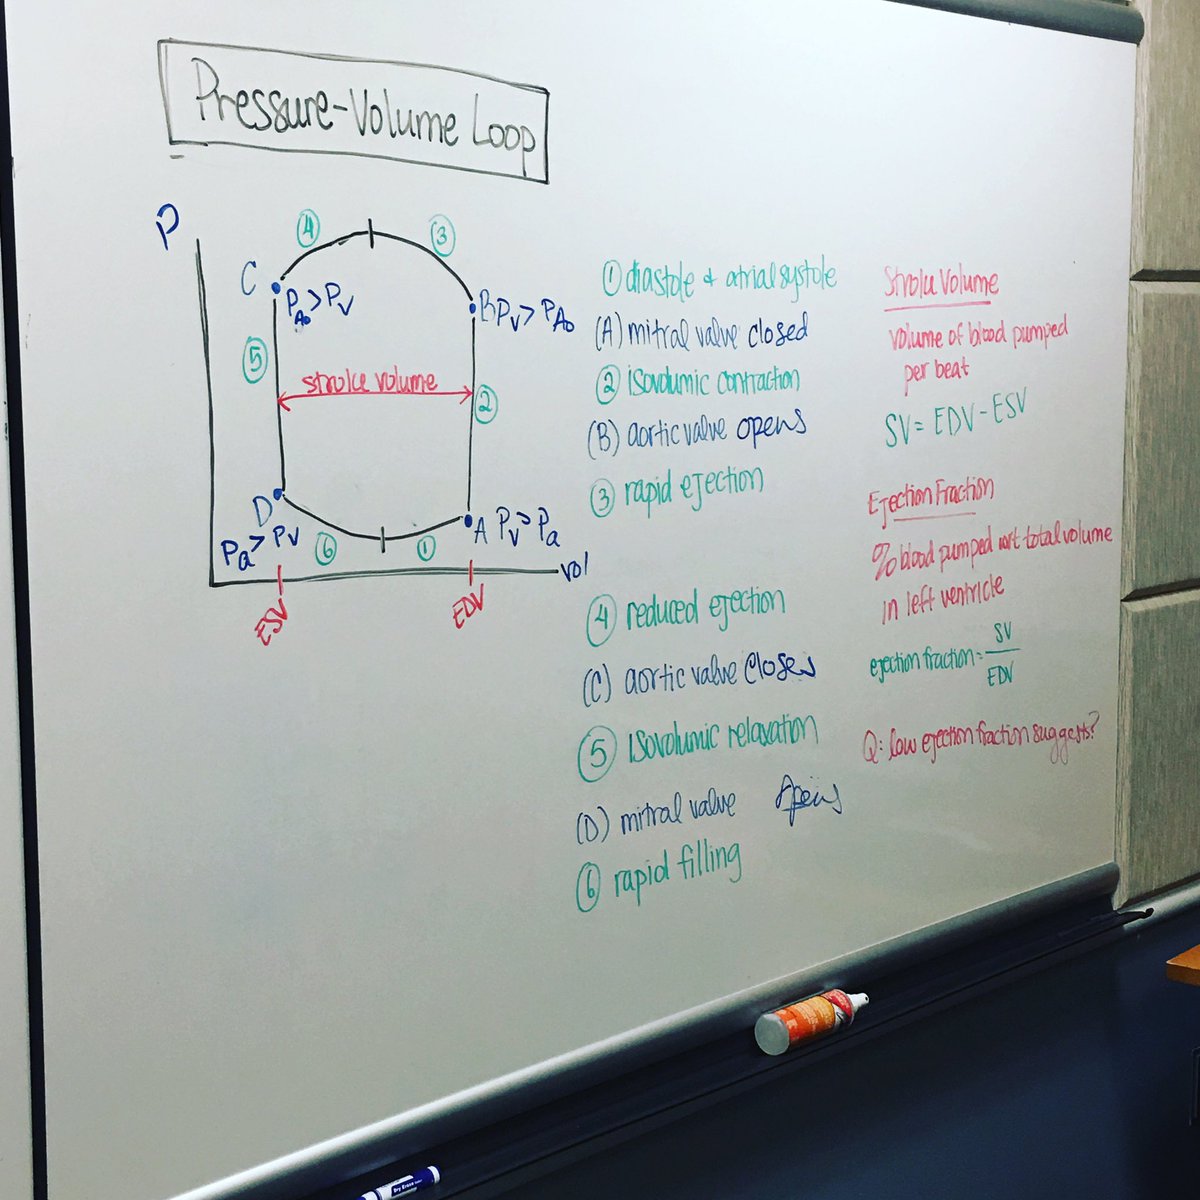 Pressure-Volume Loop
P
④
③
C
P_Ao > P_V
B P_V > P_Ao
⑤
stroke volume
②
D
P_a > P_V
⑥
①
A P_V > P_a
vol
ESV
EDV
① diastole + atrial systole
(A) mitral valve closed
② isovolumic contraction
(B) aortic valve opens
③ rapid ejection
④ reduced ejection
(C) aortic valve closes
⑤ isovolumic relaxation
(D) mitral valve opens
⑥ rapid filling
Stroke Volume
volume of blood pumped
per beat
SV = EDV - ESV
Ejection Fraction
% blood pumped wrt total volume
in left ventricle
ejection fraction = SV
EDV
Q: low ejection fraction suggests?
Dry Erase